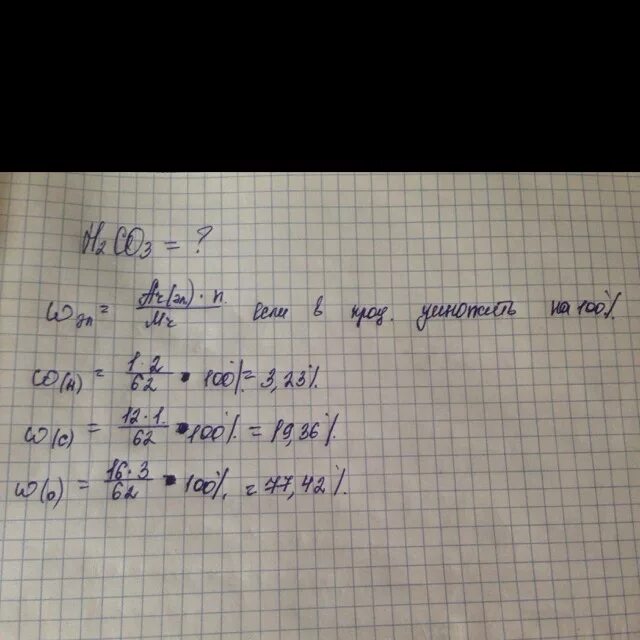 H₂CO₃ = ?
ω эл = Ar(эл) · n / Mr если в проц. умножить на 100%
ω(H) = 1·2 / 62 · 100% = 3,23%.
ω(C) = 12·1 / 62 · 100% = 19,36%.
ω(O) = 16·3 / 62 · 100% = 77,42%.